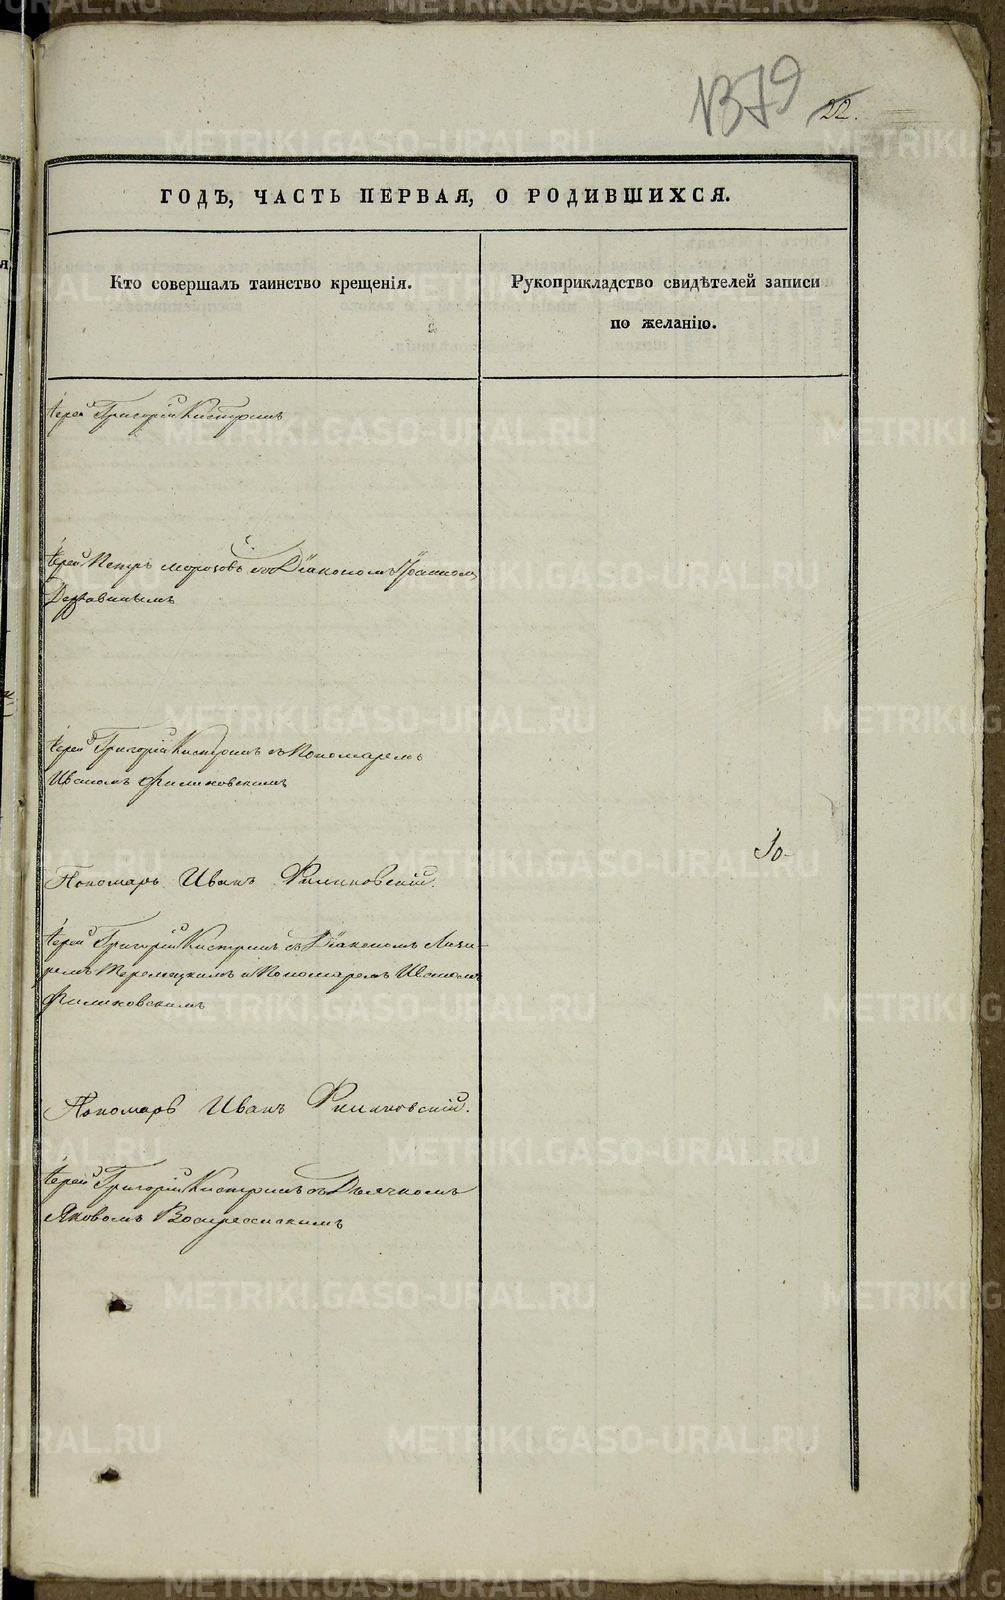 1379
22.
ГОДЪ, ЧАСТЬ ПЕРВАЯ, О РОДИВШИХСЯ.
Кто совершалъ таинство крещенія.
Рукоприкладство свидѣтелей записи
по желанію.
Іерей Григорій Кистринъ
Іерей Петръ Морозовъ съ Діакономъ Іоанномъ
Державинымъ
Іерей Григорій Кистринъ съ Пономаремъ
Иваномъ Филиковскимъ
Пономарь Иванъ Филиковскій.
Іерей Григорій Кистринъ съ Діакономъ Лаза-
ремъ и Пономаремъ Иваномъ
Филиковскимъ
Пономарь Иванъ Филиковскій.
Іерей Григорій Кистринъ съ Дьячкомъ
Яковомъ Воскресенскимъ
METRIKI.GASO-URAL.RU